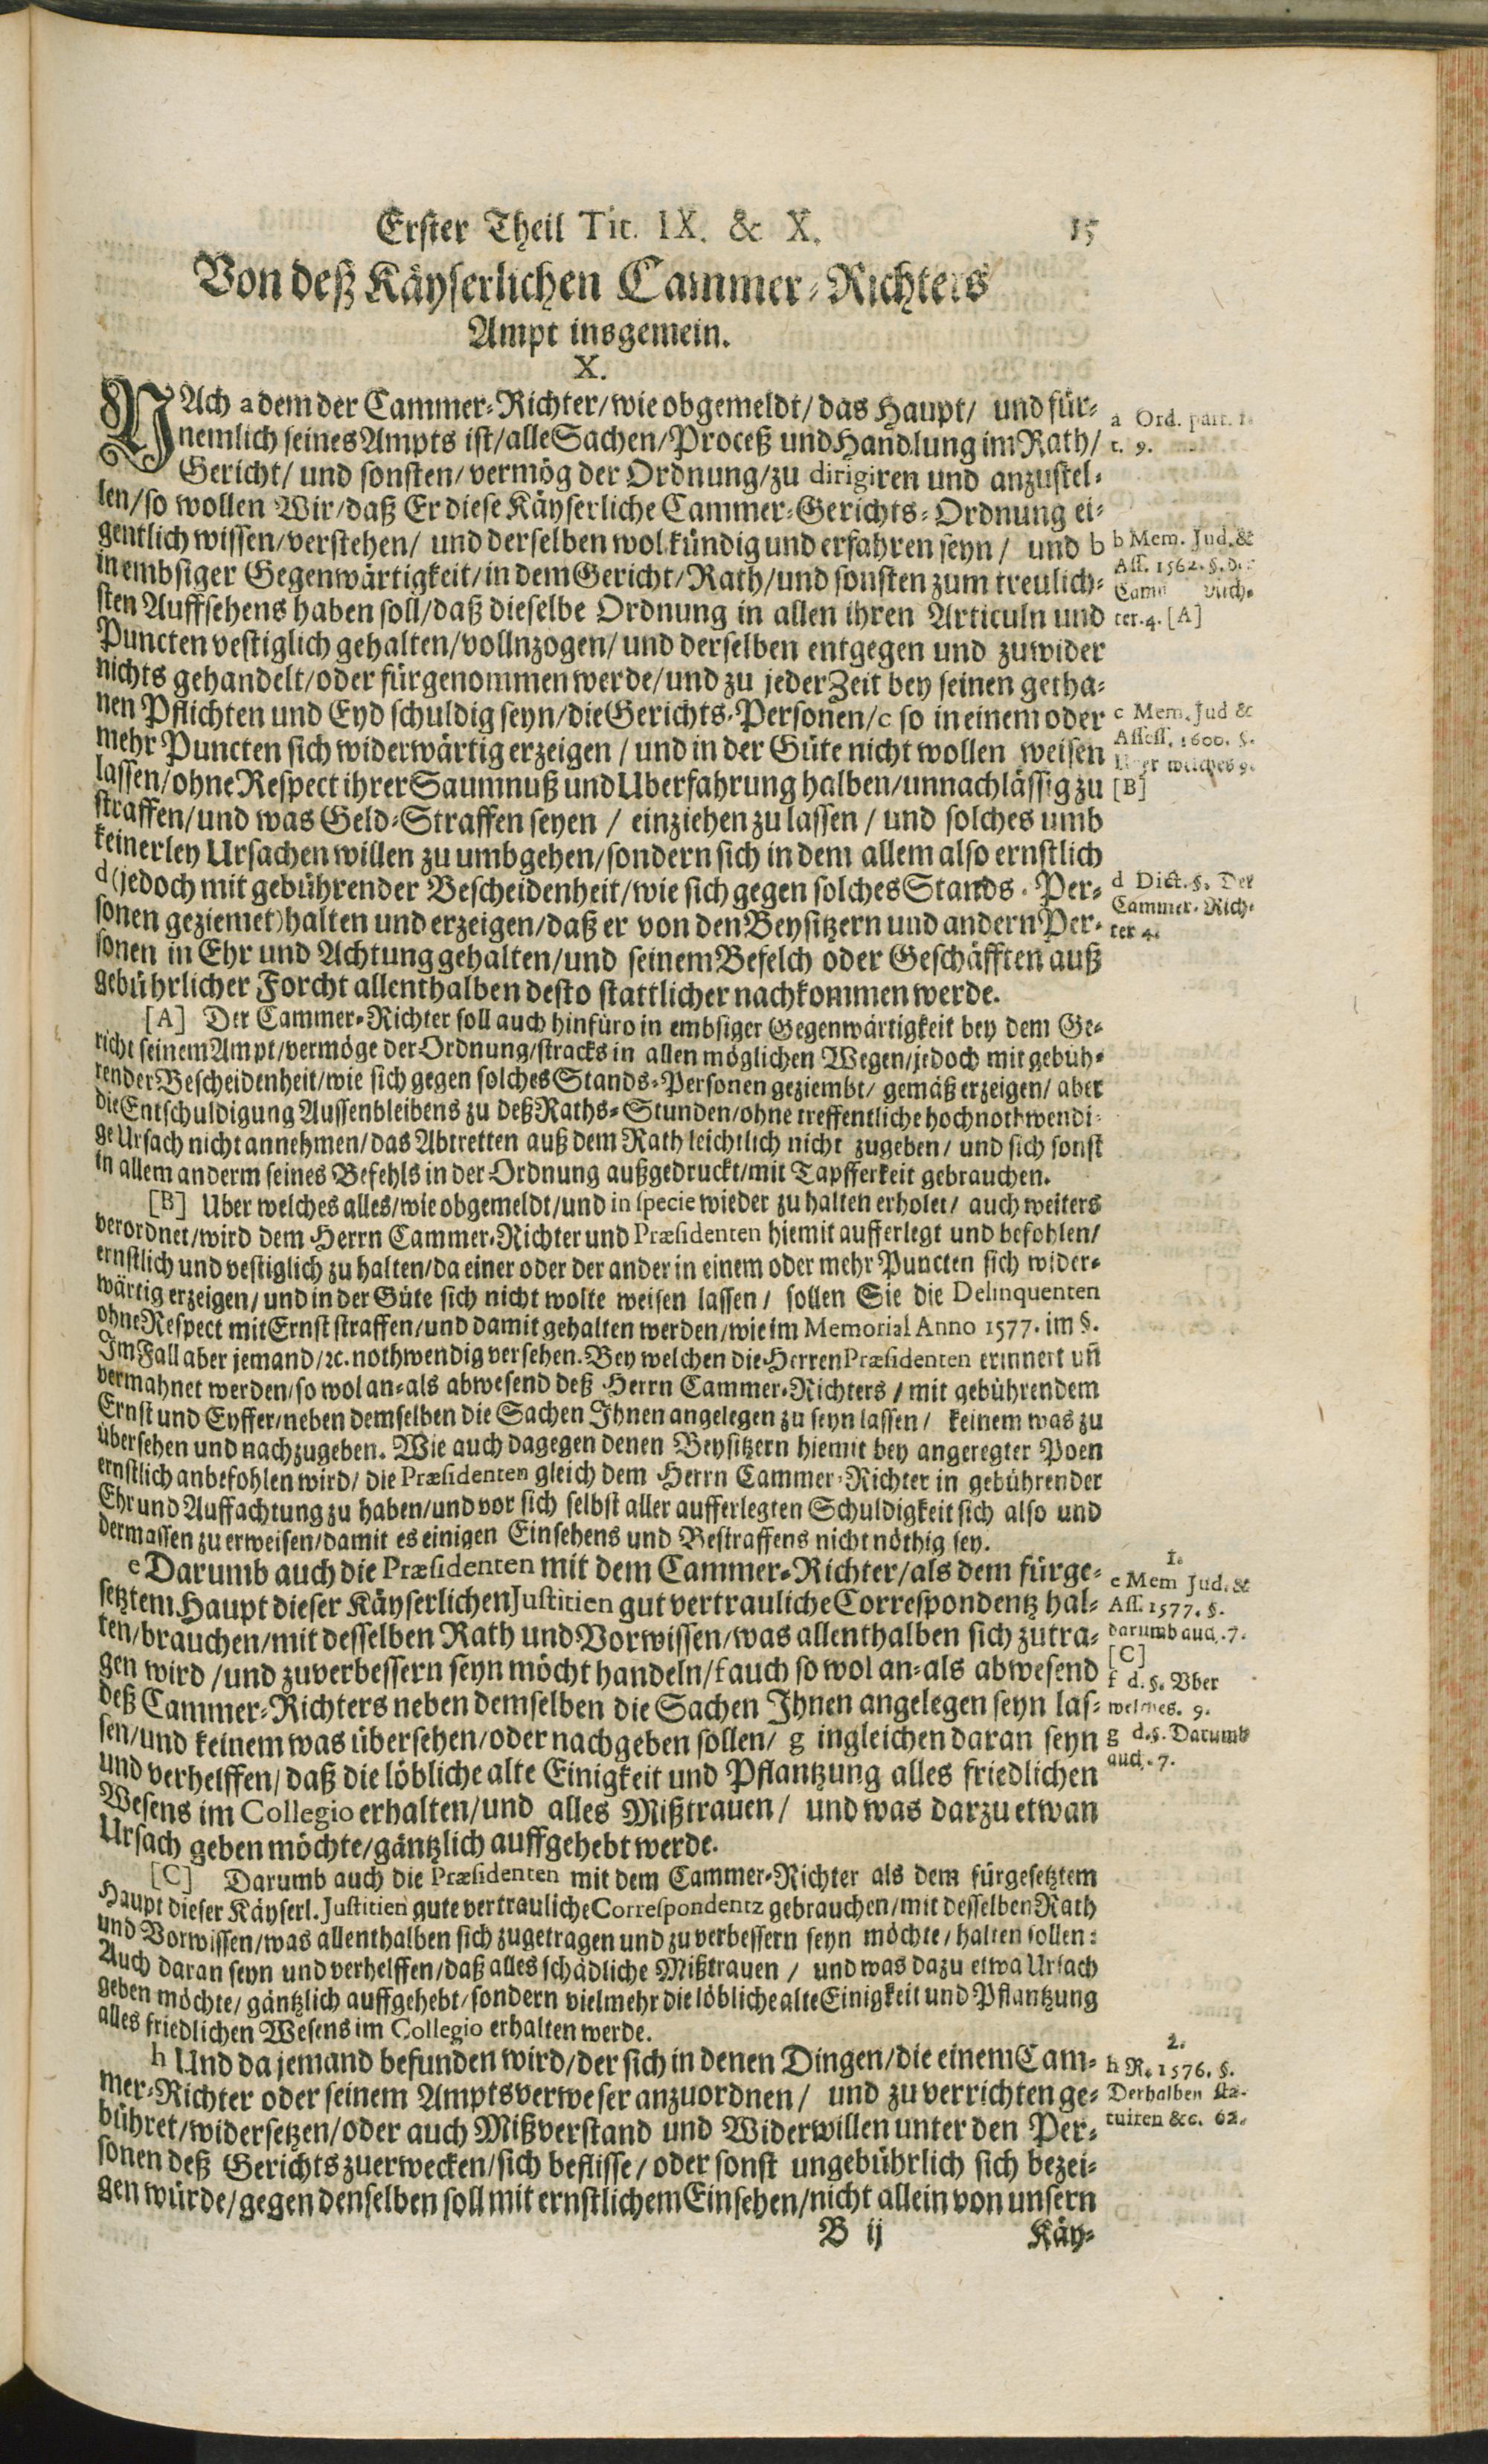 Erster Theil Tit. IX. & X. 15
Von deß Käyserlichen Cammer-Richters
Ampt insgemein.
X.
NAch a dem der Cammer-Richter/wie obgemeldt/das Haupt/ und für-
nemlich seines Ampts ist/alle Sachen/Proceß und Handlung im Rath/
Gericht/ und sonsten/vermög der Ordnung/zu dirigiren und anzustel-
len/so wollen Wir/daß Er diese Käyserliche Cammer-Gerichts-Ordnung ei-
gentlich wissen/verstehen/ und derselben wol kündig und erfahren seyn/ und b
in embsiger Gegenwärtigkeit/in dem Gericht/Rath/und sonsten zum treulich-
sten Auffsehens haben soll/daß dieselbe Ordnung in allen ihren Articuln und
Puncten vestiglich gehalten/vollnzogen/und derselben entgegen und zuwider
nichts gehandelt/oder fürgenommen werde/und zu jeder Zeit bey seinen getha-
nen Pflichten und Eyd schuldig seyn/die Gerichts-Personen/c so in einem oder
mehr Puncten sich widerwärtig erzeigen/und in der Güte nicht wollen weisen
lassen/ohne Respect ihrer Saumnuß und Uberfahrung halben/unnachlässig zu
straffen/und was Geld-Straffen seyen/ einziehen zu lassen/und solches umb
keinerley Ursachen willen zu umbgehen/sondern sich in dem allem also ernstlich
d (jedoch mit gebührender Bescheidenheit/wie sich gegen solches Stands-Per-
sonen geziemet) halten und erzeigen/daß er von den Beysitzern und andern Per-
sonen in Ehr und Achtung gehalten/und seinem Befelch oder Geschäfften auß
gebührlicher Forcht allenthalben desto stattlicher nachkommen werde.
[A] Der Cammer-Richter soll auch hinfüro in embsiger Gegenwärtigkeit bey dem Ge-
richt seinem Ampt/vermöge der Ordnung/stracks in allen möglichen Wegen/jedoch mit gebüh-
render Bescheidenheit/wie sich gegen solches Stands-Personen geziembt/ gemäß erzeigen/ aber
die Entschuldigung Aussenbleibens zu deß Raths-Stunden/ohne treffentliche hochnothwendi-
ge Ursach nicht annehmen/das Abtretten auß dem Rath leichtlich nicht zugeben/ und sich sonst
in allem anderm seines Befehls in der Ordnung außgedruckt/mit Tapfferkeit gebrauchen.
[B] Uber welches alles/wie obgemeldt/und in specie wieder zu halten erholet/ auch weiters
verordnet/wird dem Herrn Cammer-Richter und Præsidenten hiemit aufferlegt und befohlen/
ernstlich und vestiglich zu halten/da einer oder der ander in einem oder mehr Puncten sich wider-
wärtig erzeigen/und in der Güte sich nicht wolte weisen lassen/ sollen Sie die Delinquenten
ohne Respect mit Ernst straffen/und damit gehalten werden/wie im Memorial Anno 1577. im §.
Im Fall aber jemand/ꝛc. nothwendig versehen. Bey welchen die Herren Præsidenten erinnert uñ
vermahnet werden/so wol an-als abwesend deß Herrn Cammer-Richters/mit gebührendem
Ernst und Eyffer/neben demselben die Sachen Ihnen angelegen zu seyn lassen/ keinem was zu
übersehen und nachzugeben. Wie auch dagegen denen Beysitzern hiemit bey angeregter Poen
ernstlich anbefohlen wird/ die Præsidenten gleich dem Herrn Cammer-Richter in gebührender
Ehr und Auffachtung zu haben/und vor sich selbst aller aufferlegten Schuldigkeit sich also und
dermassen zu erweisen/damit es einigen Einsehens und Bestraffens nicht nöthig sey.
e Darumb auch die Præsidenten mit dem Cammer-Richter/als dem fürge-
setztem Haupt dieser Käyserlichen Justitien gut vertrauliche Correspondentz hal-
ten/brauchen/mit desselben Rath und Vorwissen/was allenthalben sich zutra-
gen wird/und zuverbessern seyn möcht handeln/f auch so wol an-als abwesend
deß Cammer-Richters neben demselben die Sachen Ihnen angelegen seyn las-
sen/und keinem was übersehen/oder nachgeben sollen/ g ingleichen daran seyn
und verhelffen/daß die löbliche alte Einigkeit und Pflantzung alles friedlichen
Wesens im Collegio erhalten/und alles Mißtrauen/ und was darzu etwan
Ursach geben möchte/gäntzlich auffgehebt werde.
[C] Darumb auch die Præsidenten mit dem Cammer-Richter als dem fürgesetztem
Haupt dieser Käyserl. Justitien gute vertrauliche Correspondentz gebrauchen/mit desselben Rath
und Vorwissen/was allenthalben sich zugetragen und zu verbessern seyn möchte/halten sollen:
Auch daran seyn und verhelffen/daß alles schädliche Mißtrauen/ und was dazu etwa Ursach
geben möchte/gäntzlich auffgehebt/sondern vielmehr die löbliche alte Einigkeit und Pflantzung
alles friedlichen Wesens im Collegio erhalten werde.
h Und da jemand befunden wird/der sich in denen Dingen/die einem Cam-
mer-Richter oder seinem Amptsverweser anzuordnen/ und zu verrichten ge-
bühret/widersetzen/oder auch Mißverstand und Widerwillen unter den Per-
sonen deß Gerichts zuerwecken/sich beflisse/oder sonst ungebührlich sich bezei-
gen würde/gegen denselben soll mit ernstlichem Einsehen/nicht allein von unsern
B ij Käy-
a Ord. part. 1.
t. 9.
b Mem. Jud. &
Ass. 1562. §.
ter. 4. [A]
c Mem. Jud &
Assess. 1600. §.
welches 9.
[B]
d Dict. §. Der
Cammer-Rich-
ter 4.
1.
e Mem Jud. &
Ass. 1577. §.
darumb auch. 7.
[C]
f d. §. Vber
welches. 9.
g d. §. Darumb
auch. 7.
2.
h R. 1576. §.
Derhalben sta-
tuiren &c. 62.